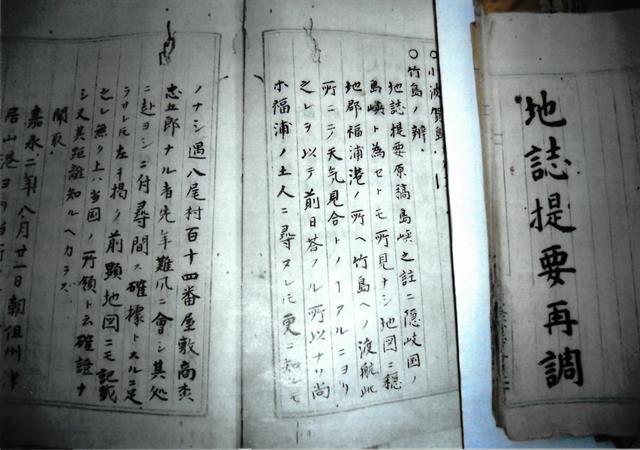 地誌提要再調
○小波賀島
○竹島ノ辨
地誌提要原稿島嶼之註ニ隠岐国ノ
島嶼ト為セトモ所見ナシ地図ニ穏
地郡福浦港ノ所ヘ竹島ヘノ渡航此
所ニテ天気見合トノヿアルニヨリ
之レヲ以テ前日答フル所以ナリ尚
ホ福浦ノ土人ニ尋ヌレ𪜈更ニ知レモ
ノナシ遇八尾村百十四番屋敷高梨
忠五郎ナル者先年難風ニ會シ其処
ニ赴ヨシニ付尋問ス確據トスルニ足
ラサレ𪜈左ニ掲ク前顕地図ニモ記載
之レ無ク上ハ当国ノ所領ト云確證ナ
シ又其距離知ルヘカラズ
聞取
嘉永二年八月廿一日朝但州津
居山港ヨリ